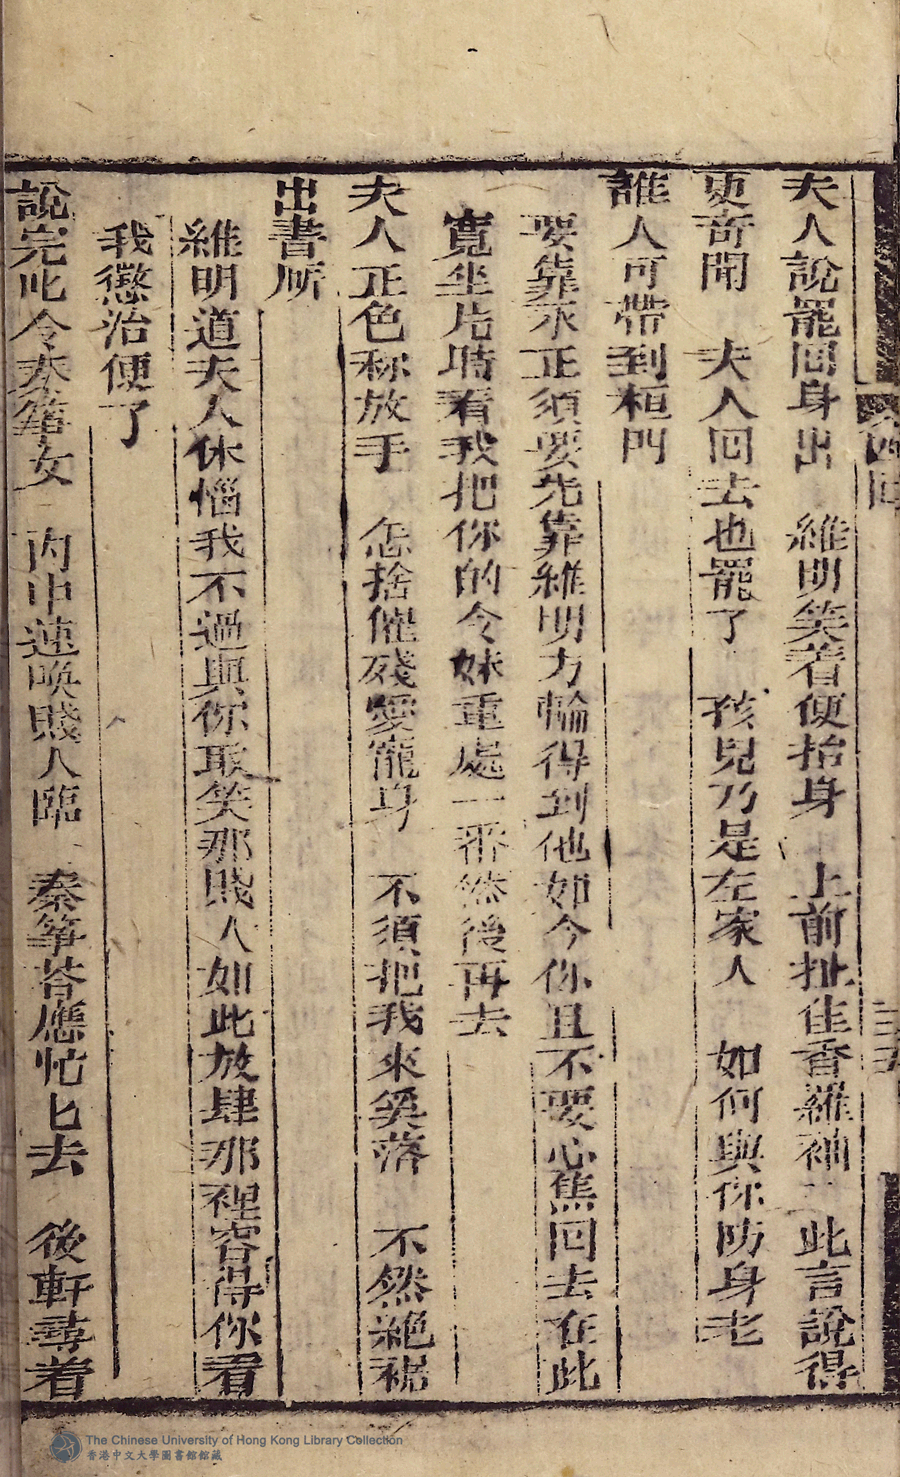 夫人說罷囬身出　維明笑着便抬身　上前扯住香羅袖　此言說得
更奇聞　夫人回去也罷了　孩兒乃是左家人　如何與你防身老
誰人可帶到桓門
要靠永正須要先靠維明方輪得到他如今你且不要心焦回去在此
寬坐片時看我把你的令妹重處一番然後再去
夫人正色称放手　怎捨催殘愛寵身　不須把我來奚落　不然絶裾
出書所
維明道夫人休惱我不過與你取笑那賤人如此放肆那裡容得你看
我懲治便了
說完叱令秦箏女　內中速唤賤人臨　秦箏荅應忙匕去　後軒尋着
四回
The Chinese University of Hong Kong Library Collection
香港中文大學圖書館館藏